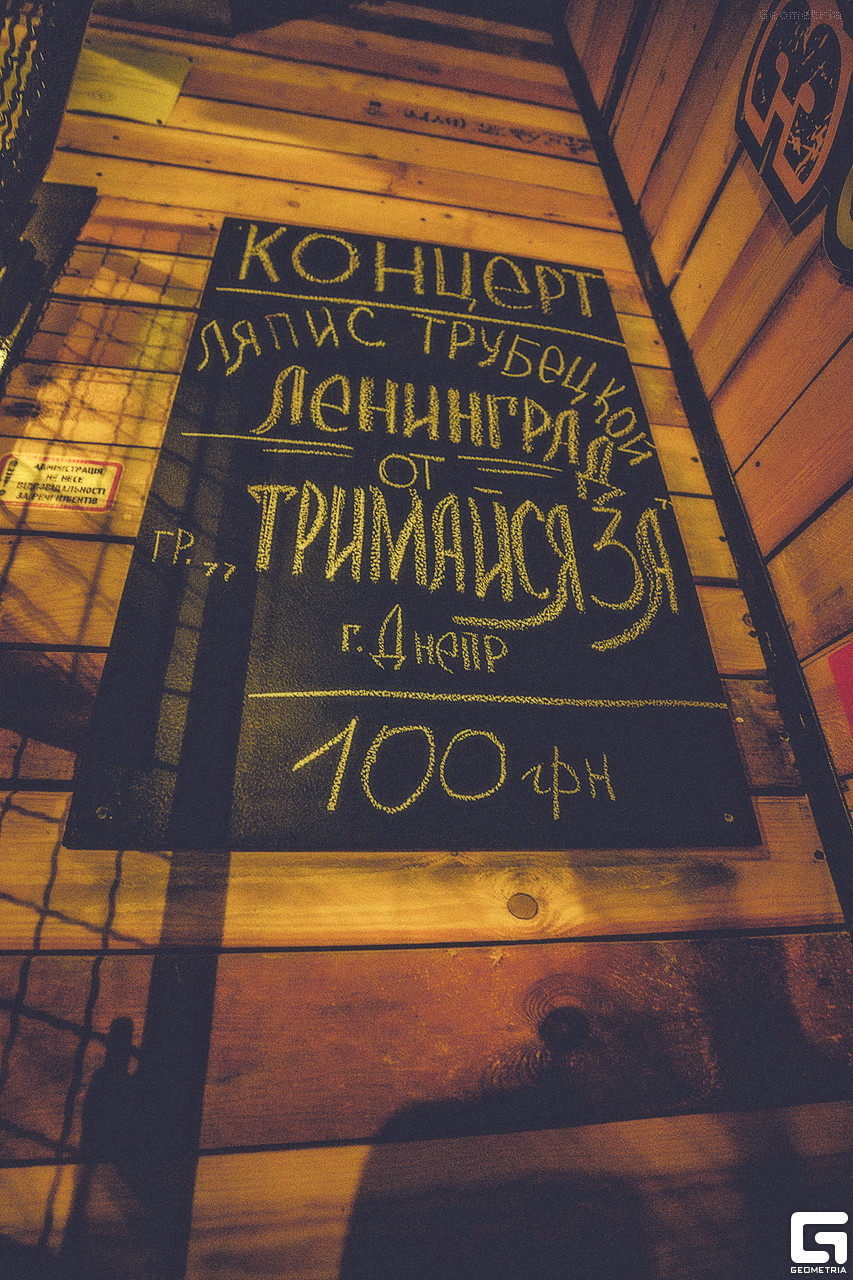 Geometria
КОНЦЕРТ
ЛЯПИС ТРУБЕЦКОЙ
ЛЕНИНГРАД
ОТ
ГР. „ТРИМАЙСЯ ЗА"
г. Днепр
100 грн
АДМІНІСТРАЦІЯ
НЕ НЕСЕ
ВІДПОВІДАЛЬНОСТІ
ЗА РЕЧІ КЛІЄНТІВ
GEOMETRIA